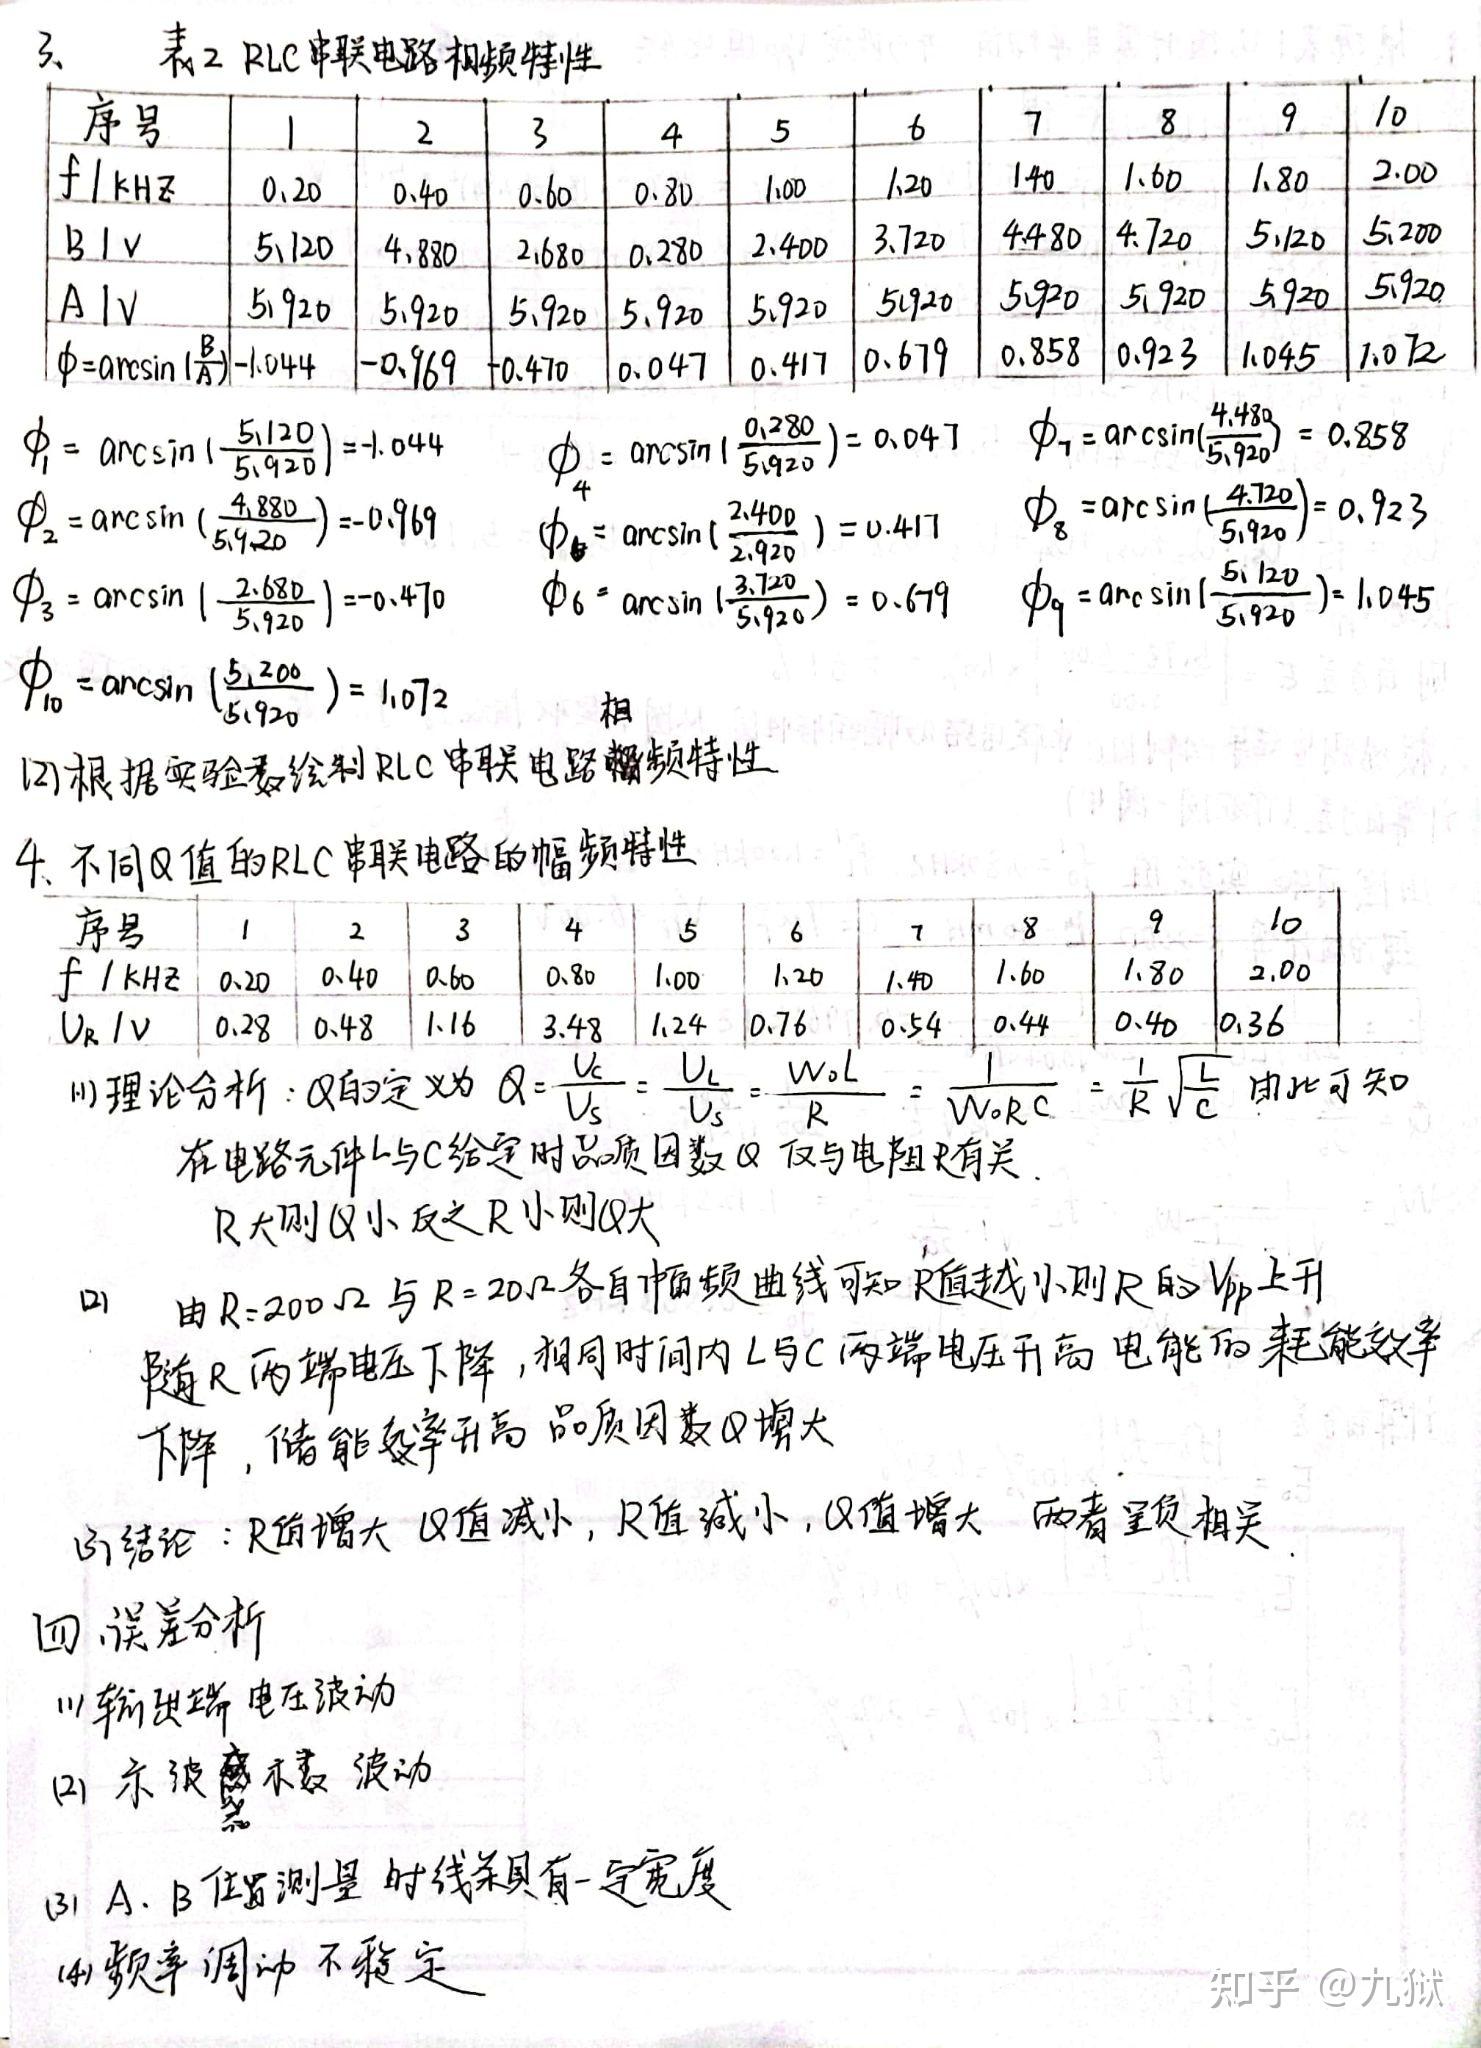 3、 表2 RLC串联电路相频特性
序号 1 2 3 4 5 6 7 8 9 10
f/KHZ 0.20 0.40 0.60 0.80 1.00 1.20 1.40 1.60 1.80 2.00
B/V 5.120 4.880 2.680 0.280 2.400 3.720 4.480 4.720 5.120 5.200
A/V 5.920 5.920 5.920 5.920 5.920 5.920 5.920 5.920 5.920 5.920
ϕ=arcsin(B/A) -1.044 -0.969 -0.470 0.047 0.417 0.679 0.858 0.923 1.045 1.072
ϕ1=arcsin(5.120/5.920)=-1.044 ϕ4=arcsin(0.280/5.920)=0.047 ϕ7=arcsin(4.480/5.920)=0.858
ϕ2=arcsin(4.880/5.920)=-0.969 ϕ5=arcsin(2.400/2.920)=0.417 ϕ8=arcsin(4.720/5.920)=0.923
ϕ3=arcsin(2.680/5.920)=-0.470 ϕ6=arcsin(3.720/5.920)=0.679 ϕ9=arcsin(5.120/5.920)=1.045
ϕ10=arcsin(5.200/5.920)=1.072
(2)根据实验数绘制RLC串联电路相频特性
4、不同Q值的RLC串联电路的幅频特性
序号 1 2 3 4 5 6 7 8 9 10
f/KHZ 0.20 0.40 0.60 0.80 1.00 1.20 1.40 1.60 1.80 2.00
UR/V 0.28 0.48 1.16 3.48 1.24 0.76 0.54 0.44 0.40 0.36
(1)理论分析:Q的定义为 Q=Uc/Us=UL/Us=W0L/R=1/W0RC=1/R√(L/C) 由此可知
在电路元件L与C给定时品质因数Q仅与电阻R有关.
R大则Q小反之R小则Q大
(2) 由R=200Ω与R=20Ω各自幅频曲线可知R值越小则R的Vpp上升
随R两端电压下降,相同时间内L与C两端电压升高 电能的耗能效率
下降,储能效率升高 品质因数Q增大
(3)结论:R值增大 Q值减小,R值减小,Q值增大 两者呈负相关.
四、误差分析
(1)输出端电压波动
(2)示波器示数波动
(3)A、B位置测量时线条具有一定宽度
(4)频率调动不稳定
知乎 @九狱